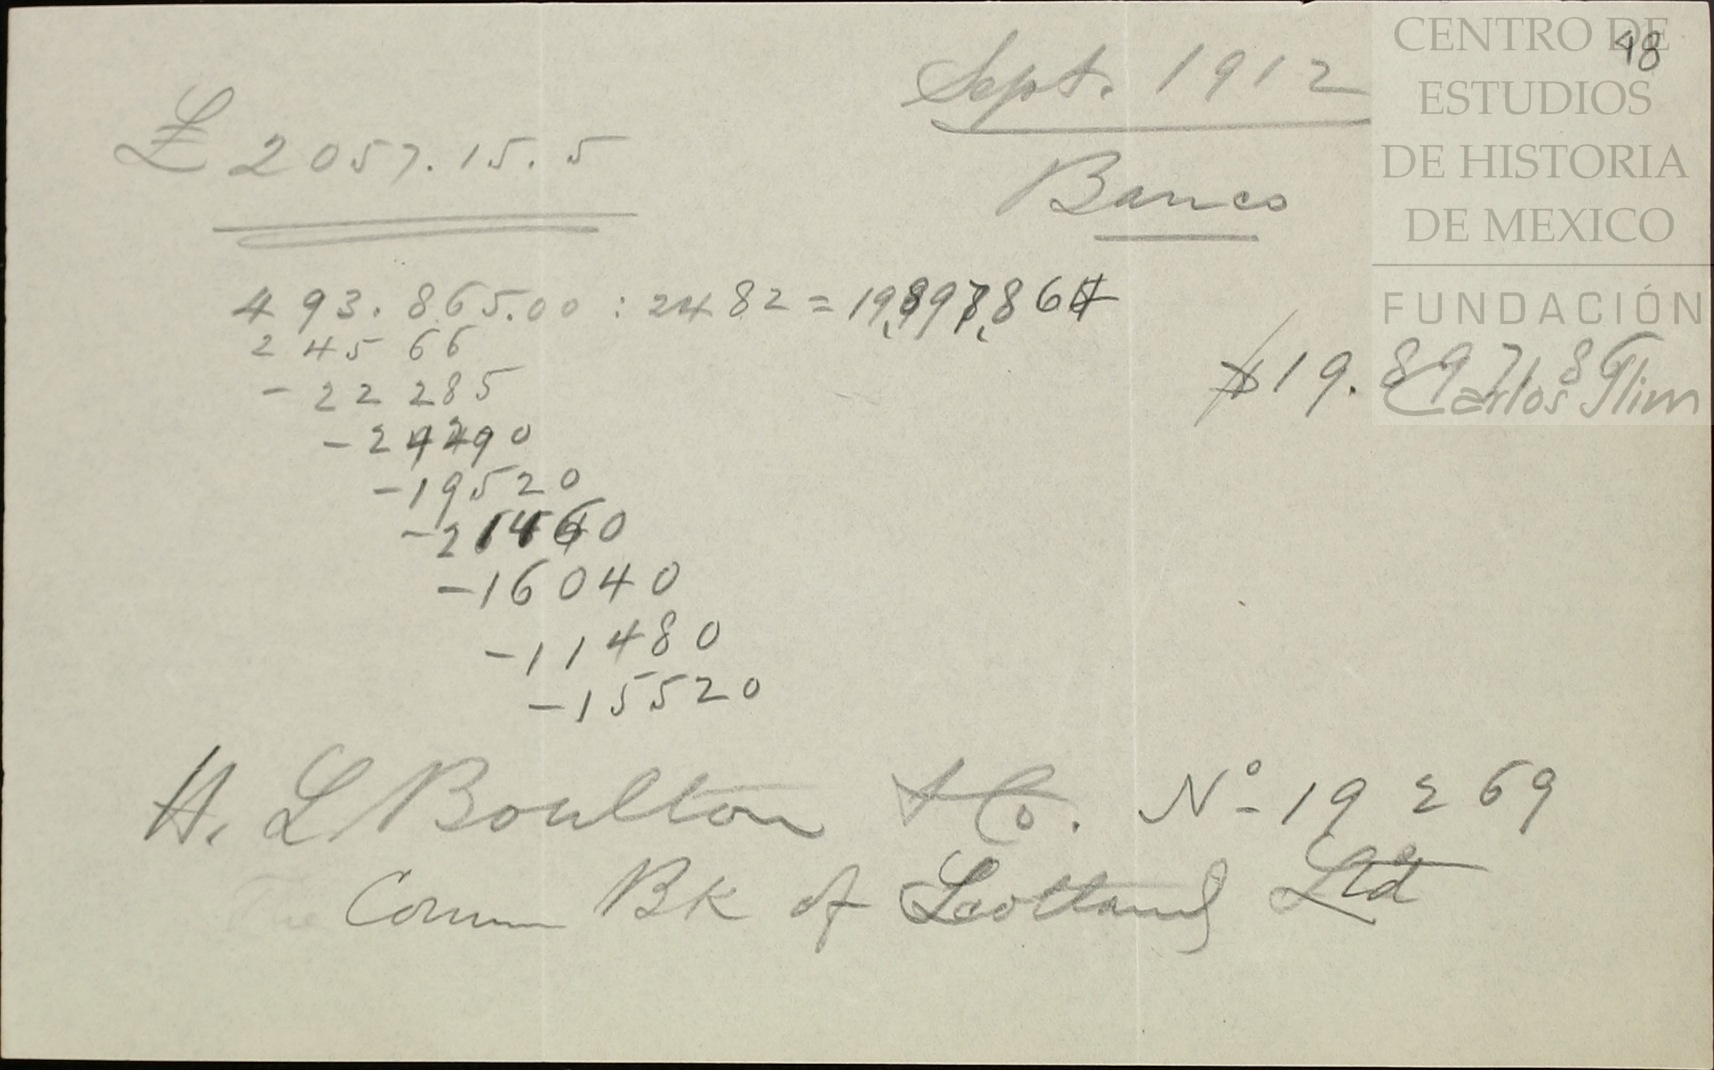 48
Sept. 1912
£ 2057.15.5
Banco
493.865.00 : 2482 = 19,897,8
24566
-22285
-24290
-19520
-21460
-16040
-11480
-15520
$19.897.86
H. L Boulton & Co. Nº 19269
The Comm Bk of Scotland Ltd
CENTRO DE
ESTUDIOS
DE HISTORIA
DE MEXICO
FUNDACIÓN
Carlos Slim